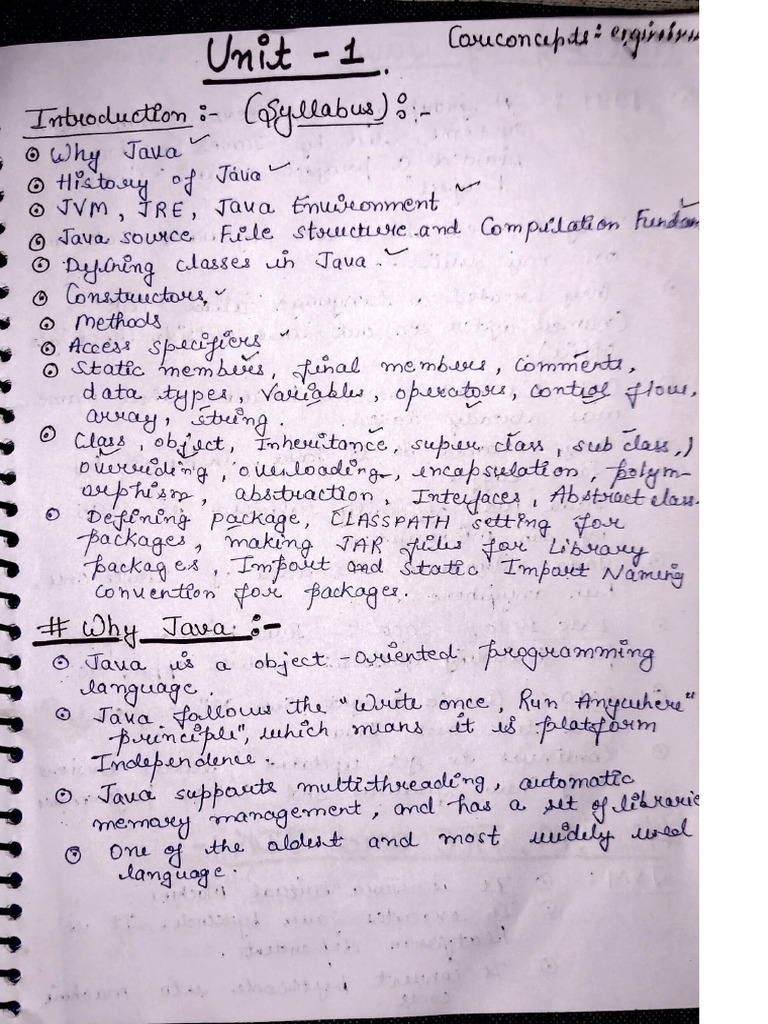 Unit - 1.
Coreconcepts:
Introduction :- (Syllabus) :-
Why Java
History of Java
JVM, JRE, Java Environment
Java source File structure and Compilation Fundam
Defining classes in Java.
Constructors,
Methods
Access specifiers
Static members, final members, comments,
data types, Variables, operators, control flow,
array, string.
Class, object, Inheritance, super class, sub class,
overriding, overloading, encapsulation, polym-
orphism, abstraction, Interfaces, Abstract class.
Defining package, CLASSPATH setting for
packages, making JAR files for Library
packages, Import and Static Import Naming
Convention for packages.
# Why Java :-
Java is a object-oriented programming
language.
Java follows the "Write once, Run Anywhere"
principle", which means it is platform
Independence.
Java supports multithreading, automatic
memory management, and has a set of librarie
One of the oldest and most widely used
language.